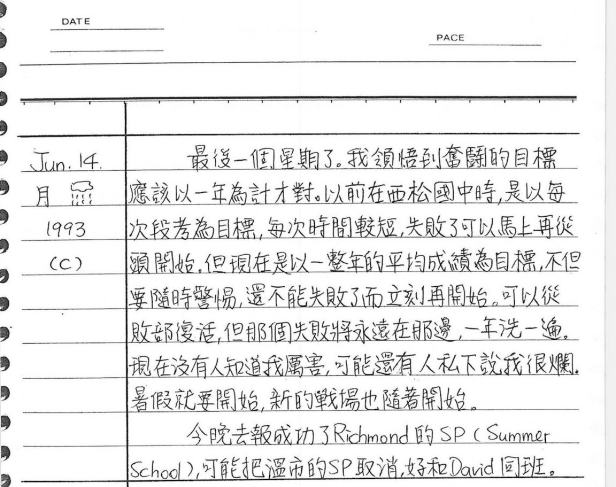 DATE
PACE
Jun. 14. 最後一個星期了。我領悟到奮鬪的目標
月 應該以一年為計才對。以前在西松國中時,是以每
1993 次段考為目標,每次時間較短,失敗了可以馬上再從
(C) 頭開始。但現在是以一整年的平均成績為目標,不但
要隨時警惕,還不能失敗了而立刻再開始。可以從
敗部復活,但那個失敗將永遠在那邊,一年洗一遍。
現在沒有人知道我厲害,可能還有人私下說我很爛。
暑假就要開始,新的戰場也隨著開始。
今晚去報成功了Richmond的SP(Summer
School),可能把溫市的SP取消,好和David同班。